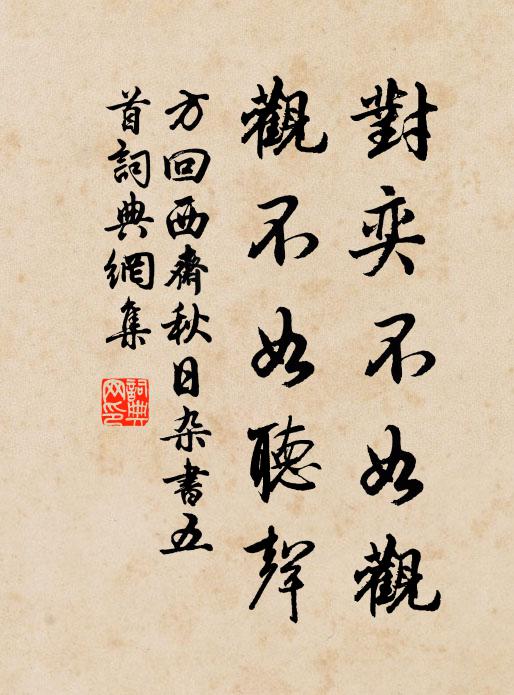 對奕不如觀
觀不如聽聲
方回西齋秋日杂書五
首詞典網集
詞典
网印